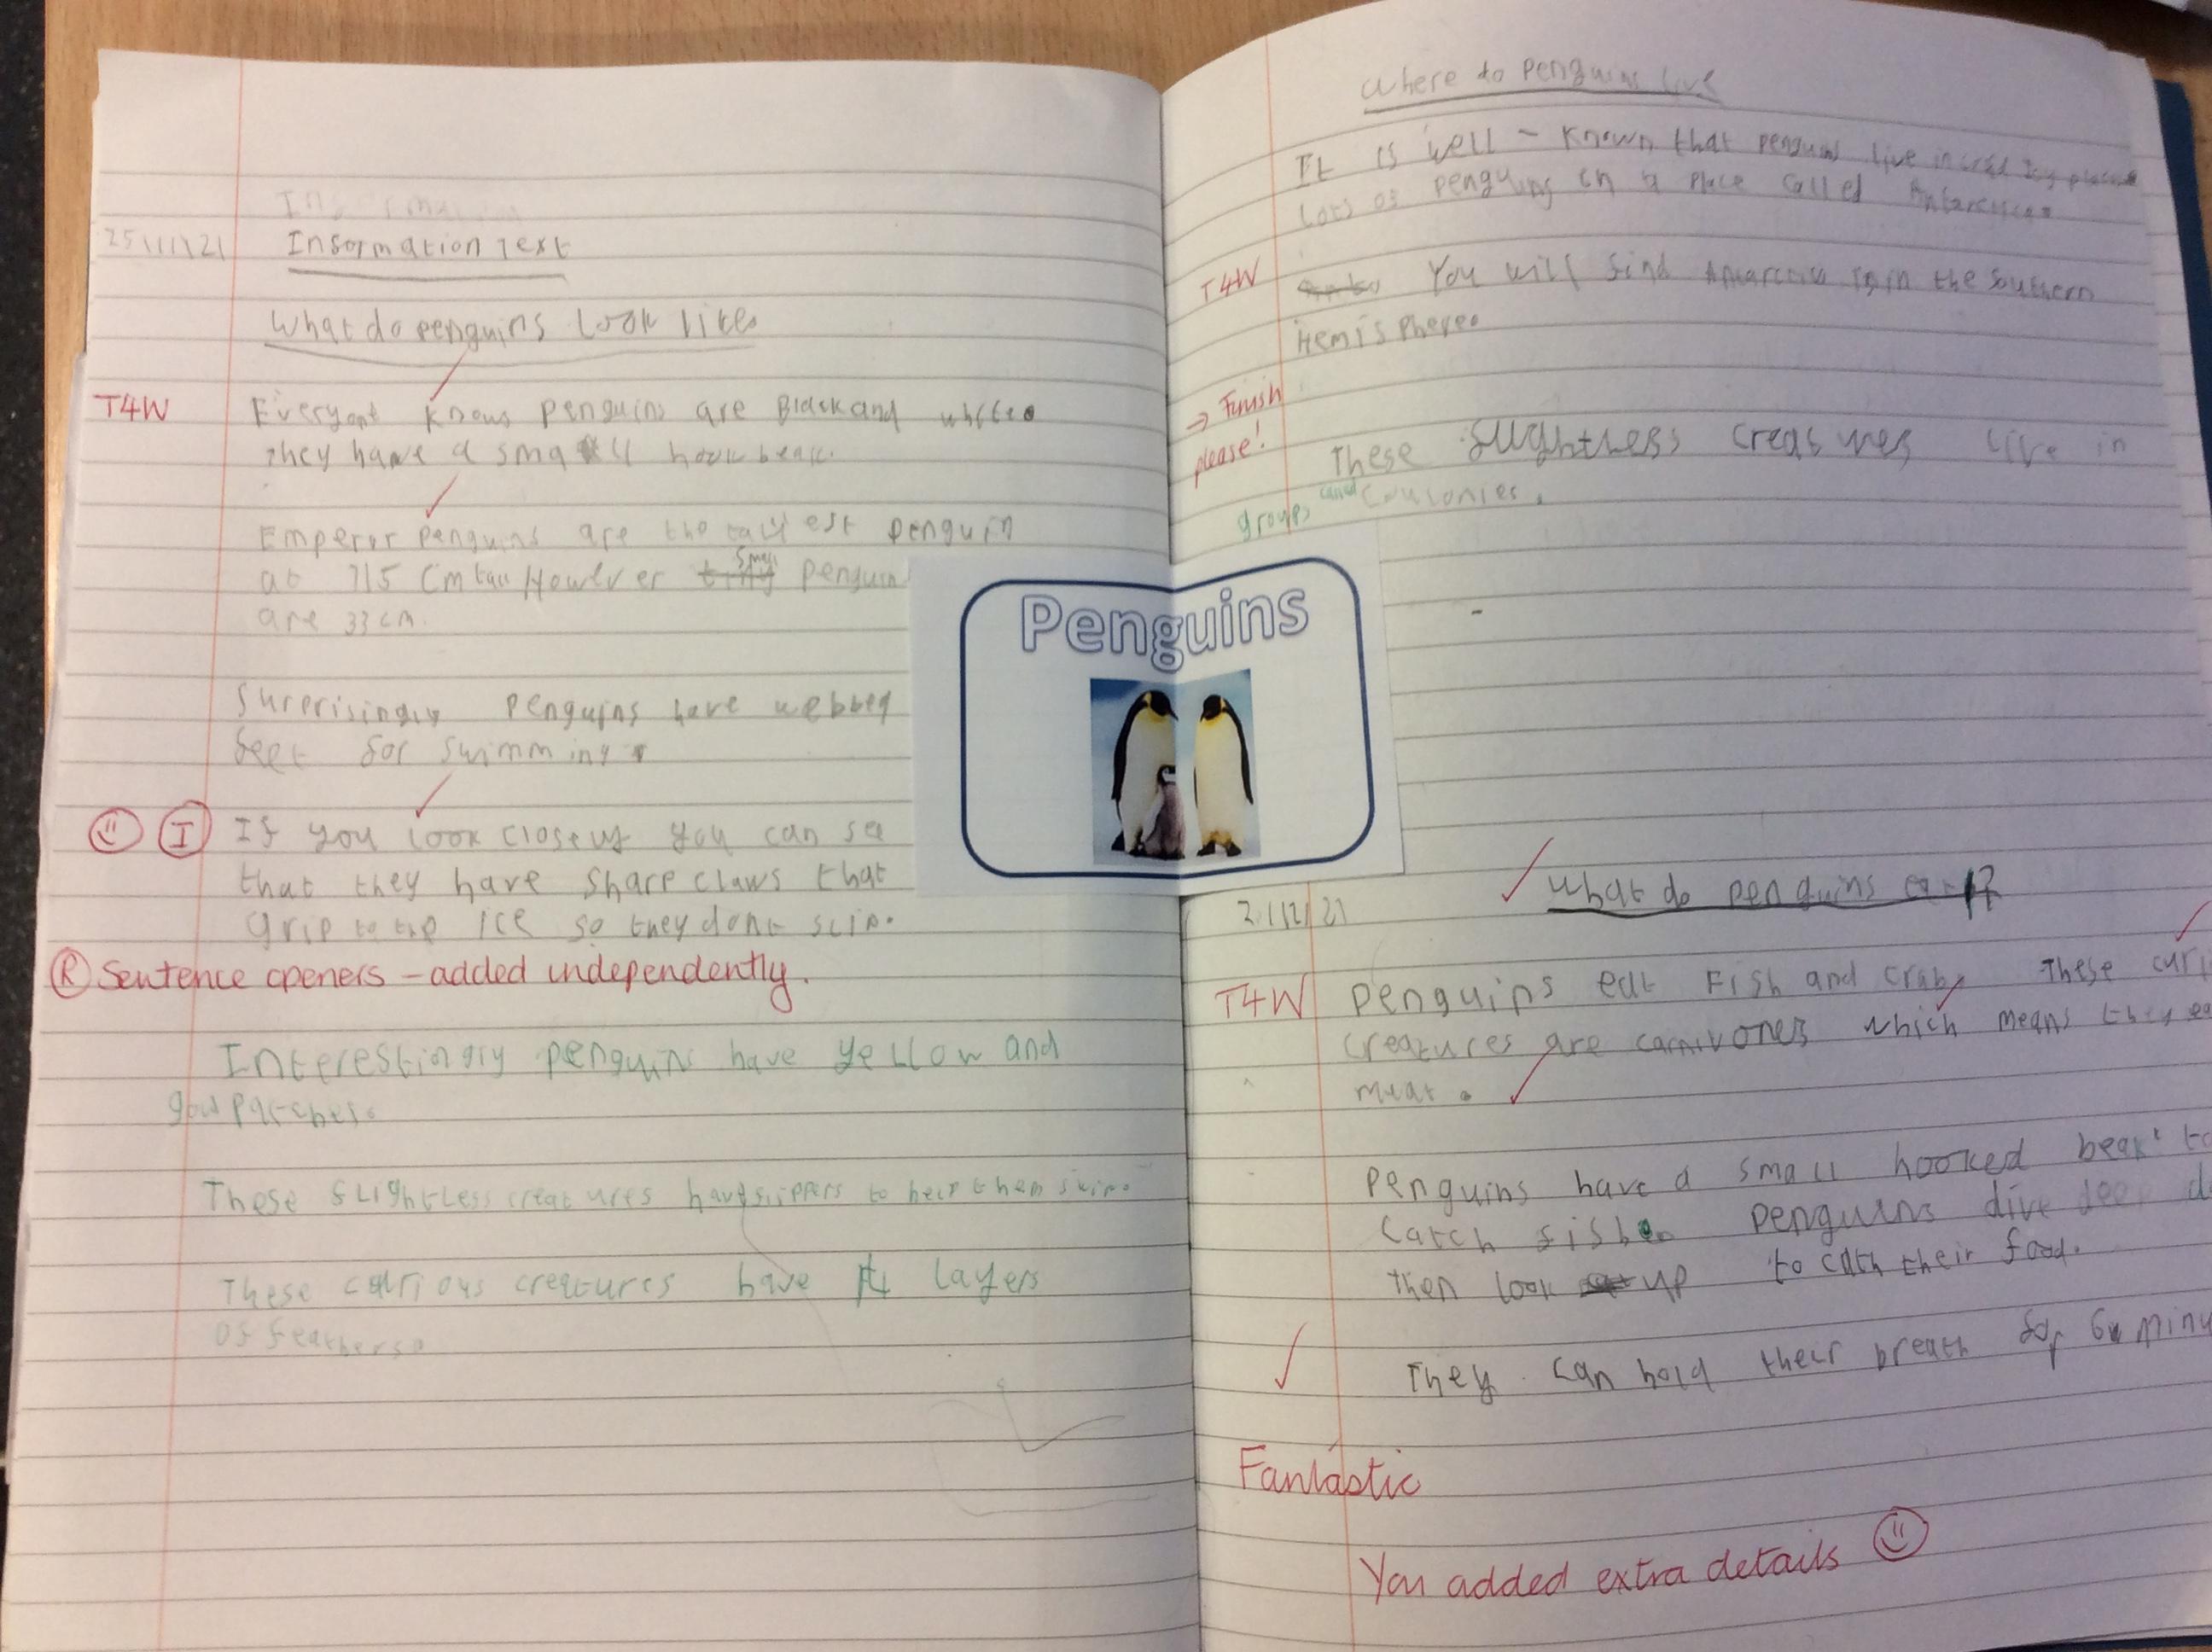 25/11/21
Information Text
What do penguins look like
T4W
Everyone knows penguins are Black and white.
They have a small hook beak.
Emperor penguins are the tallest penguin
at 115 cm tall However tiny small penguin
are 33 cm.
Surprisingly penguins have webbed
feet for swimming.
I If you look closely you can see
that they have sharp claws that
grip to the ice so they dont slip.
R Sentence openers – added independently.
Interestingly penguins have yellow and
gold patches.
These flightless creatures have flippers to help them swim.
These curious creatures have 4 layers
of feathers.
Where do penguins live
It is well - known that penguins live in cold icy places
Lots of penguins in a place called Antarctica.
T4W You will find Antarctica in the Southern
Hemisphere.
→ Finish
please!
These flightless creatures live in
groups and coulonies.
Penguins
2/12/21
What do penguins eat?
T4W Penguins eat Fish and crab, These curi
creatures are carnivores which means they ea
meat.
Penguins have a small hooked beak to
catch fish. Penguins dive deep d
then look up to cath their food.
They can hold their breath for 6 minu
Fantastic
You added extra details